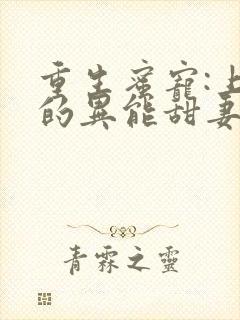 重生蜜寵:上
的異能甜妻
青霖之靈